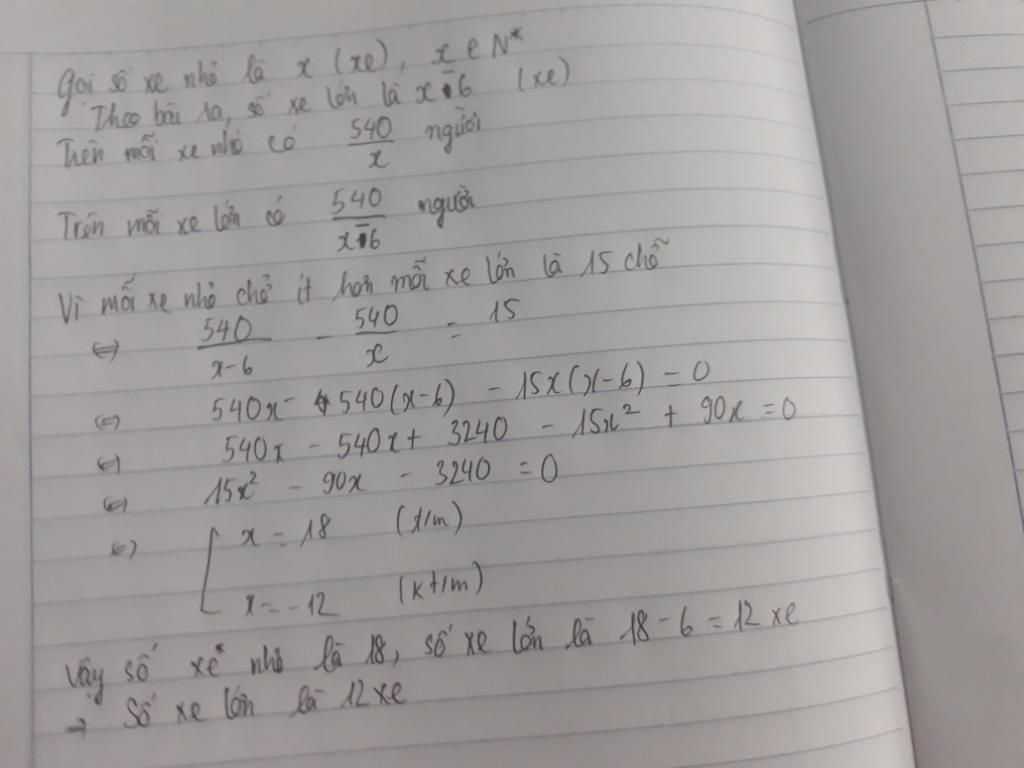 Gọi số xe nhỏ là x (xe), x ∈ N*
Theo bài ra, số xe lớn là x-6 (xe)
Trên mỗi xe nhỏ có 540/x người
Trên mỗi xe lớn có 540/x-6 người
Vì mỗi xe nhỏ chở ít hơn mỗi xe lớn là 15 chỗ
⇔ 540/x-6 - 540/x = 15
⇔ 540x - 540(x-6) - 15x(x-6) = 0
⇔ 540x - 540x + 3240 - 15x² + 90x = 0
⇔ 15x² - 90x - 3240 = 0
⇔ [ x = 18 (t/m)
x = -12 (k t/m)
Vậy số xe nhỏ là 18, số xe lớn là 18 - 6 = 12 xe
→ Số xe lớn là 12 xe